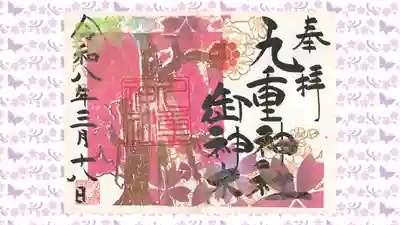 奉拝
九重神社
御神木
令和八年三月十八日